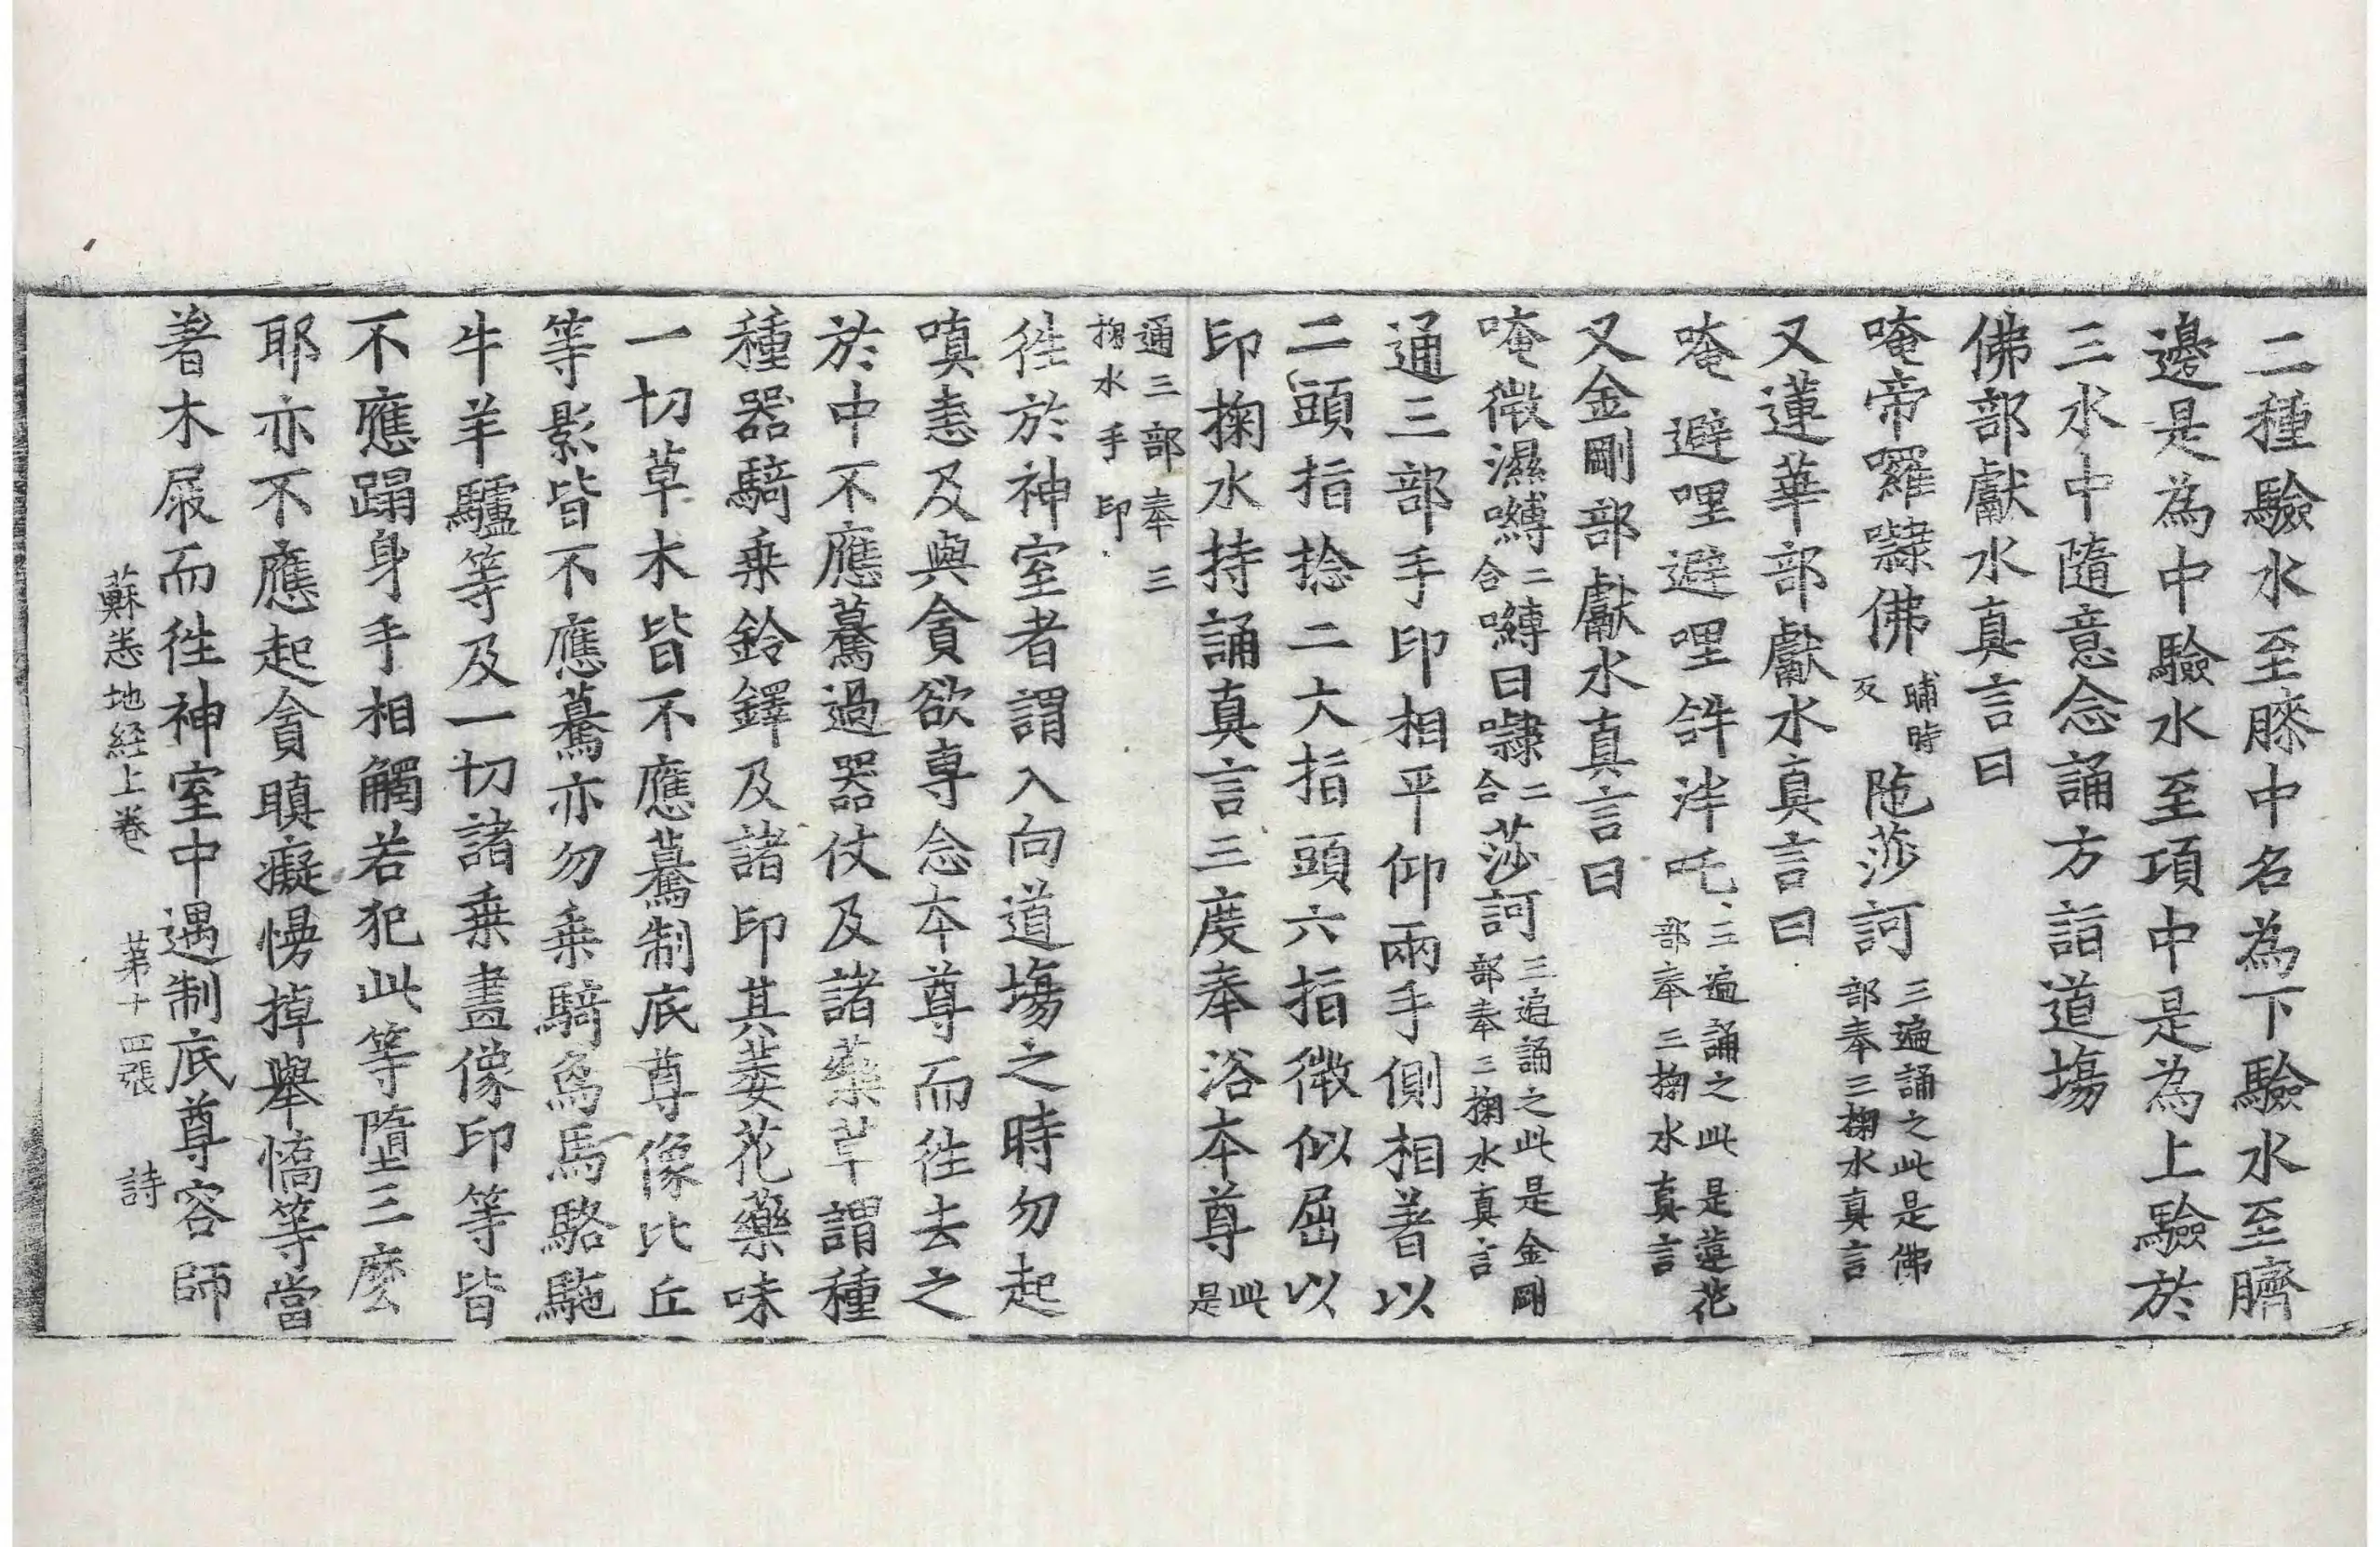 二種驗水至膝中名為下驗水至臍
邊是為中驗水至項中是為上驗於
三水中隨意念誦方詣道塲
佛部獻水真言曰
唵帝囉㘑佛晡時反陁莎訶三遍誦之此是佛部奉三掬水真言
又蓮華部獻水真言曰
唵避哩避哩𤙖泮吒三遍誦之此是蓮花部奉三掬水真言
又金剛部獻水真言曰
唵微濕嚩二合嚩日㘑二合莎訶三遍誦之此是金剛部奉三掬水真言
通三部手印相平仰兩手側相著以
二頭指捻二大指頭六指微似屈以
印掬水持誦真言三度奉浴本尊此是
通三部奉三掬水手印
徃於神室者謂入向道塲之時勿起
嗔恚及與貪欲專念本尊而徃去之
於中不應驀過器仗及諸藥草謂種
種器騎乗鈴鐸及諸印其萎花藥味
一切草木皆不應驀制底尊像比丘
等影皆不應驀亦勿乗騎象馬駱駞
牛羊驢等及一切諸乗畫像印等皆
不應蹋身手相觸若犯此等墮三麽
耶亦不應起貪瞋癡慢掉舉憍等當
著木屐而徃神室中遇制底尊容師
蘇悉地経上卷　第十四張　詩